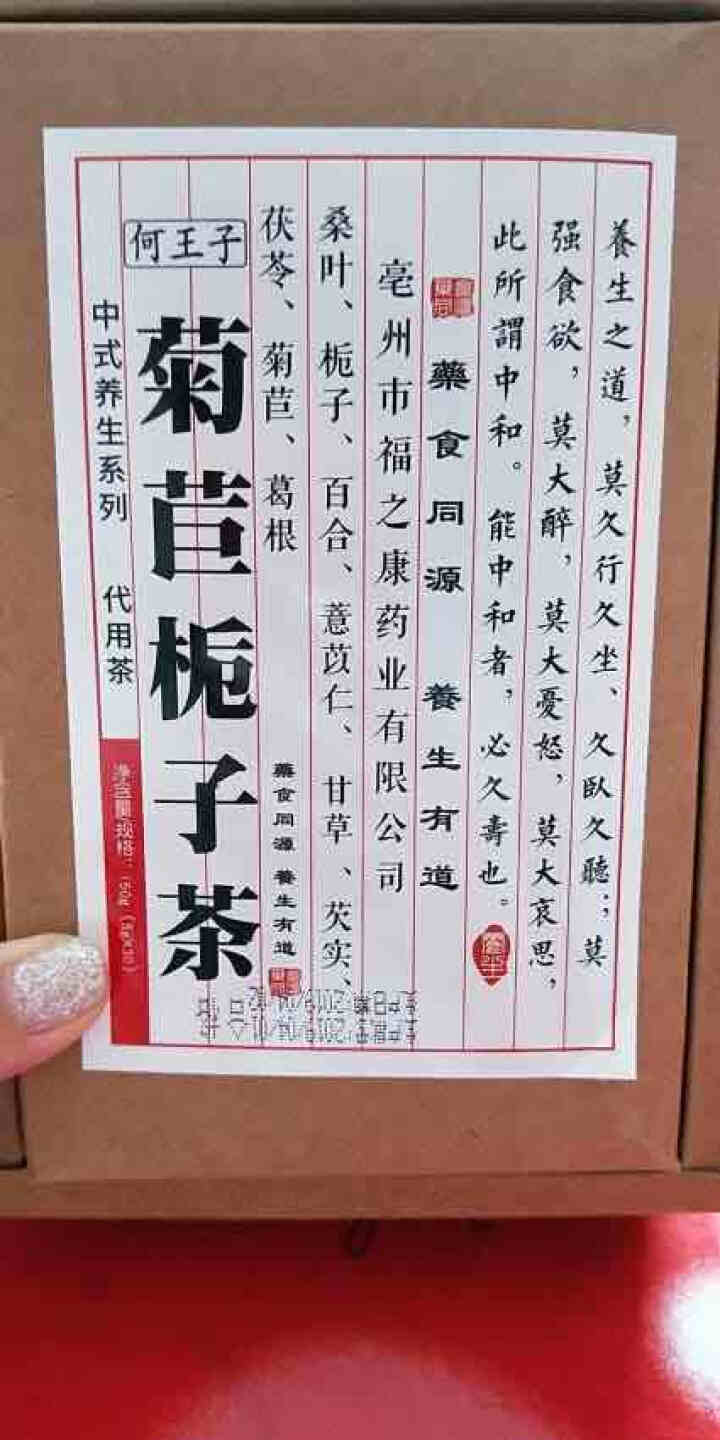 養生之道，莫久行久坐、久臥久聽；莫
强食欲，莫大醉，莫大憂怒，莫大哀思，
此所謂中和。能中和者，必久壽也。
藥食同源 養生有道
亳州市福之康药业有限公司
桑叶、栀子、百合、薏苡仁、甘草、芡实、
茯苓、菊苣、葛根
藥食同源 養生有道
何王子
菊苣栀子茶
中式养生系列 代用茶
净含量规格：150g（5g×30）